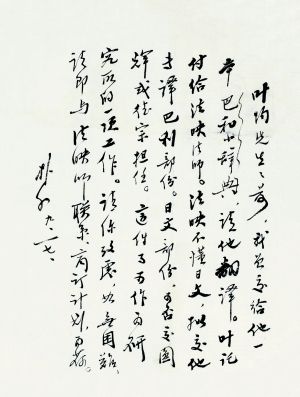 叶均先生生前,我曾交给他一
本巴和小辞典请他翻译。叶托
付给法映法师。法映不懂日文,拟交他
专译巴利部份。日文部份,可否交圆
辉或宗担任。这件事可作为研
究所的一项工作。请你考虑,如无困难,
请即与法映师联系、商订计划,为荷。
朴初 九、一七、